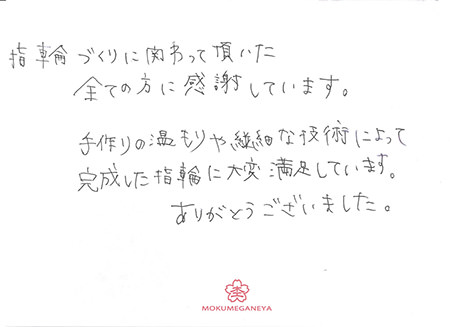 指輪づくりに関わって頂いた
全ての方に感謝しています。
手作りの温もりや繊細な技術によって
完成した指輪に大変満足しています。
ありがとうございました。
MOKUMEGANEYA